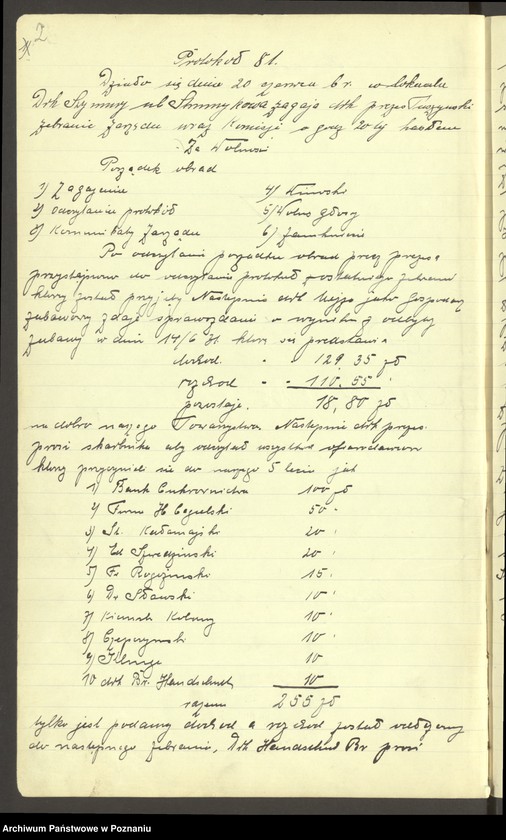 2
Protokół 81.
Działo się dnia 20 czerwca br. w lokalu
Drh Szymury ul Strumykowa zagaja drh prezes Tuszyński
zebranie zarządu wraz Komisji o godz 20tej hasłem
Za Wolność
Porządek obrad
1) Zagajenie
4) Wnioski
2) odczytanie protokół
5) Wolne głosy
3) Komunikaty Zarządu
6) Zamknięcie
Po odczytaniu porządku obrad przez prezesa
przystąpiono do odczytania protokół z ostatniego zebrania
który został przyjęty Następnie drh jako Gospodarz
zabawowy zdaje sprawozdanie o wyniku z odbytej
zabawy w dniu 14/6 31 które się przedstawia
dochód. - - 129,35 zł
rozchód - - 110,55
pozostaje. 18,80 zł
na dobro naszego Towarzystwa. Następnie drh prezes
prosi skarbnika aby odczytał wszystkie ofiarodawców
którzy przyczynili się do naszego 5 lecia jak
1) Bank Cukrownictwa 100 zł
2) Firma H Cegielski 50 -
3) St. Kałamajski 20
4) Ed Szwedziński 20
5) Fr Rogoziński 15.
6) Dr Sławski 10
7) 10
8) Czepczyński 10
9) 10
10 drh Br. Handschuh 10
razem 255 zł
tylko jest podany dochód a rozchód został odłożony
do następnego zebrania, Drh Handschuh Br prosi
Archiwum Państwowe w Poznaniu